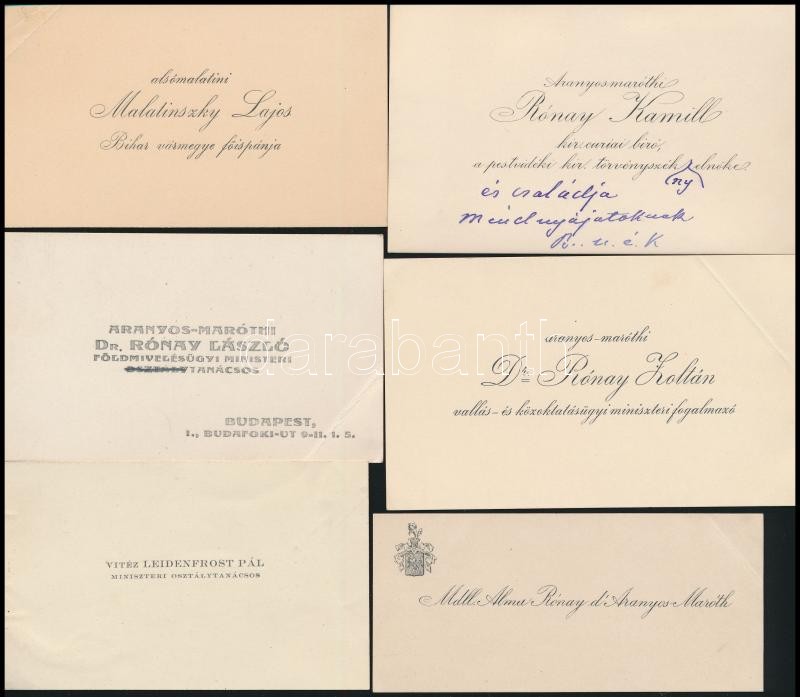 alsómalatini
Malatinszky Lajos
Bihar vármegye főispánja
Aranyosmaróthi
Rónay Kamill
kir. curiai biró,
a pestvidéki kir. törvényszék elnöke.
ny
és családja
mindnyájatoknak
B. u. é. k
ARANYOS-MARÓTHI
DR. RÓNAY LÁSZLÓ
FÖLDMIVELÉSÜGYI MINISTERI
OSZTÁLYTANÁCSOS
BUDAPEST,
I., BUDAFOKI-UT 9-11. I. 5.
aranyos-maróthi
Dr. Rónay Zoltán
vallás- és közoktatásügyi miniszteri fogalmazó
VITÉZ LEIDENFROST PÁL
MINISZTERI OSZTÁLYTANÁCSOS
Mdll. Alma Rónay d'Aranyos-Maróth
darabanth